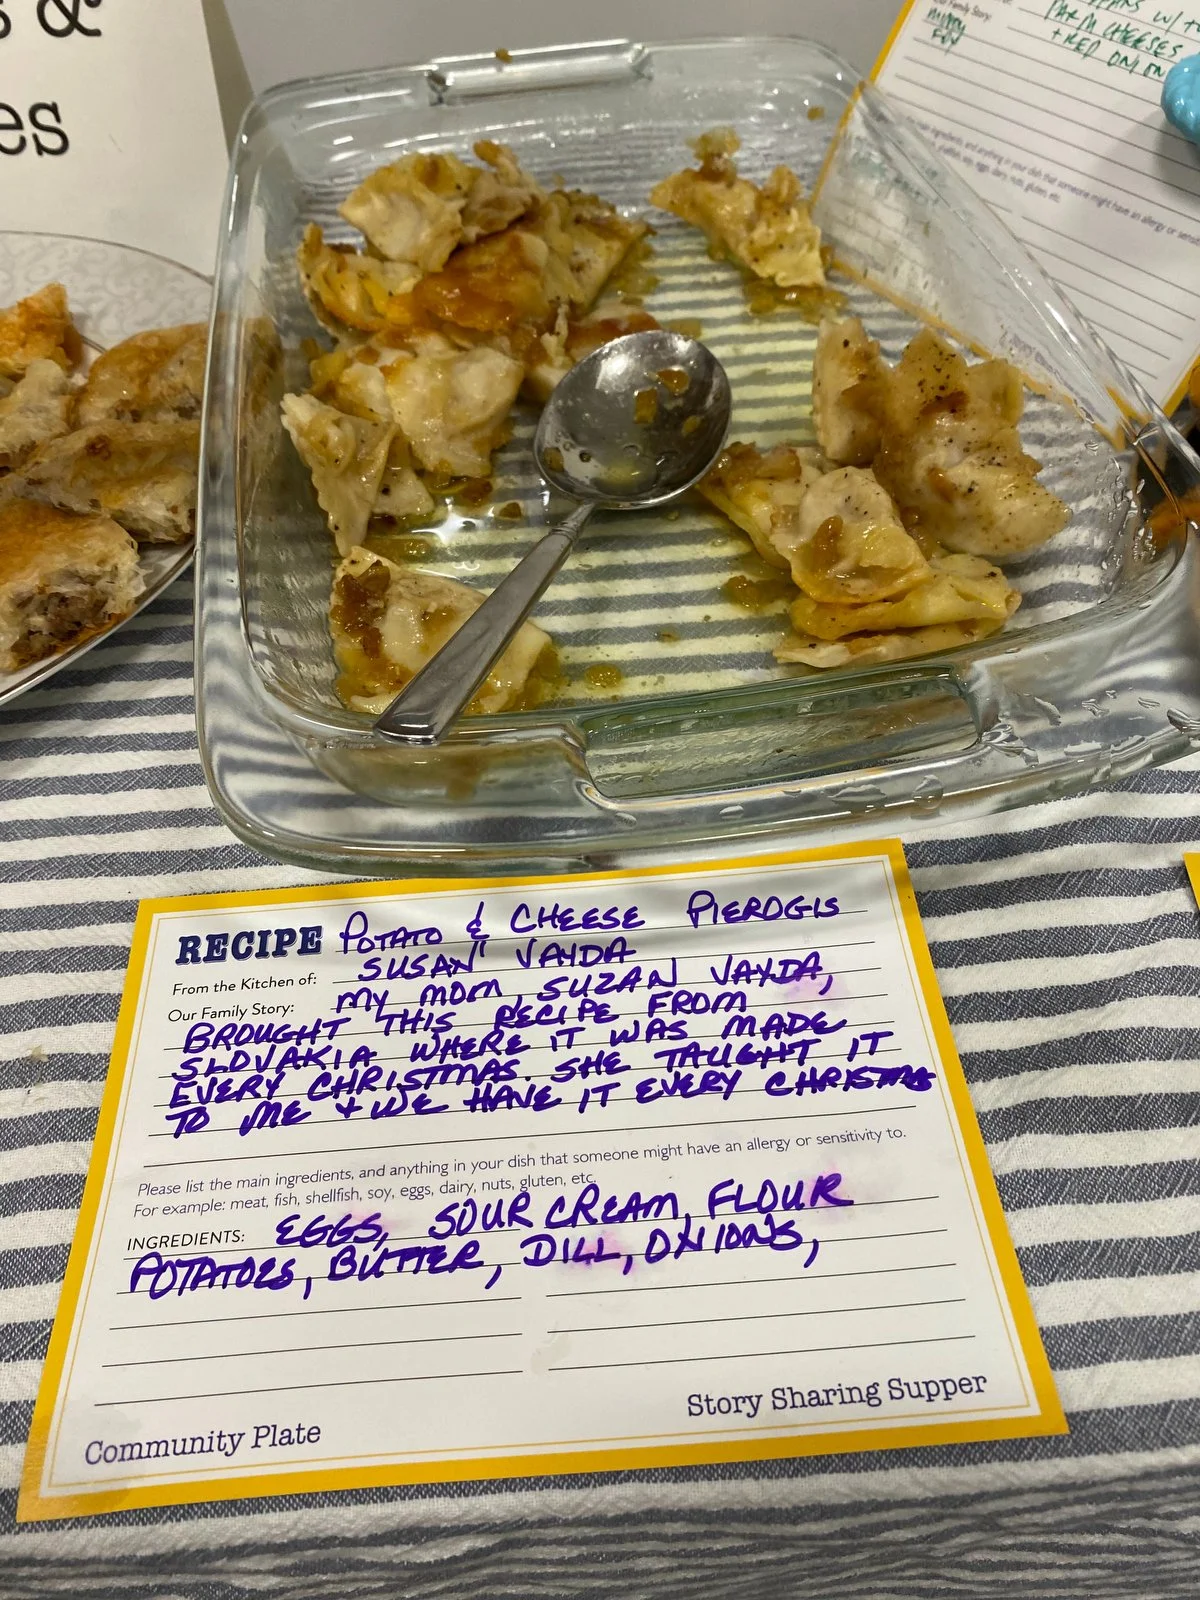 s &
es
EANS W/
Our Family Story:
PARM CHEESES
+ RED ONION
RECIPE POTATO & CHEESE PIEROGIS
From the Kitchen of: SUSAN VAYDA
Our Family Story: MY MOM, SUZAN VAYDA,
BROUGHT THIS RECIPE FROM
SLOVAKIA WHERE IT WAS MADE
EVERY CHRISTMAS. SHE TAUGHT IT
TO ME + WE HAVE IT EVERY CHRISTMAS
Please list the main ingredients, and anything in your dish that someone might have an allergy or sensitivity to.
For example: meat, fish, shellfish, soy, eggs, dairy, nuts, gluten, etc.
INGREDIENTS: EGGS, SOUR CREAM, FLOUR
POTATOES, BUTTER, DILL, ONIONS,
Community Plate
Story Sharing Supper